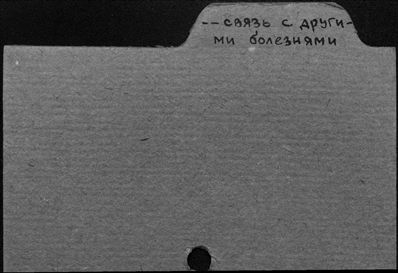 -- связь с други-
ми болезнями